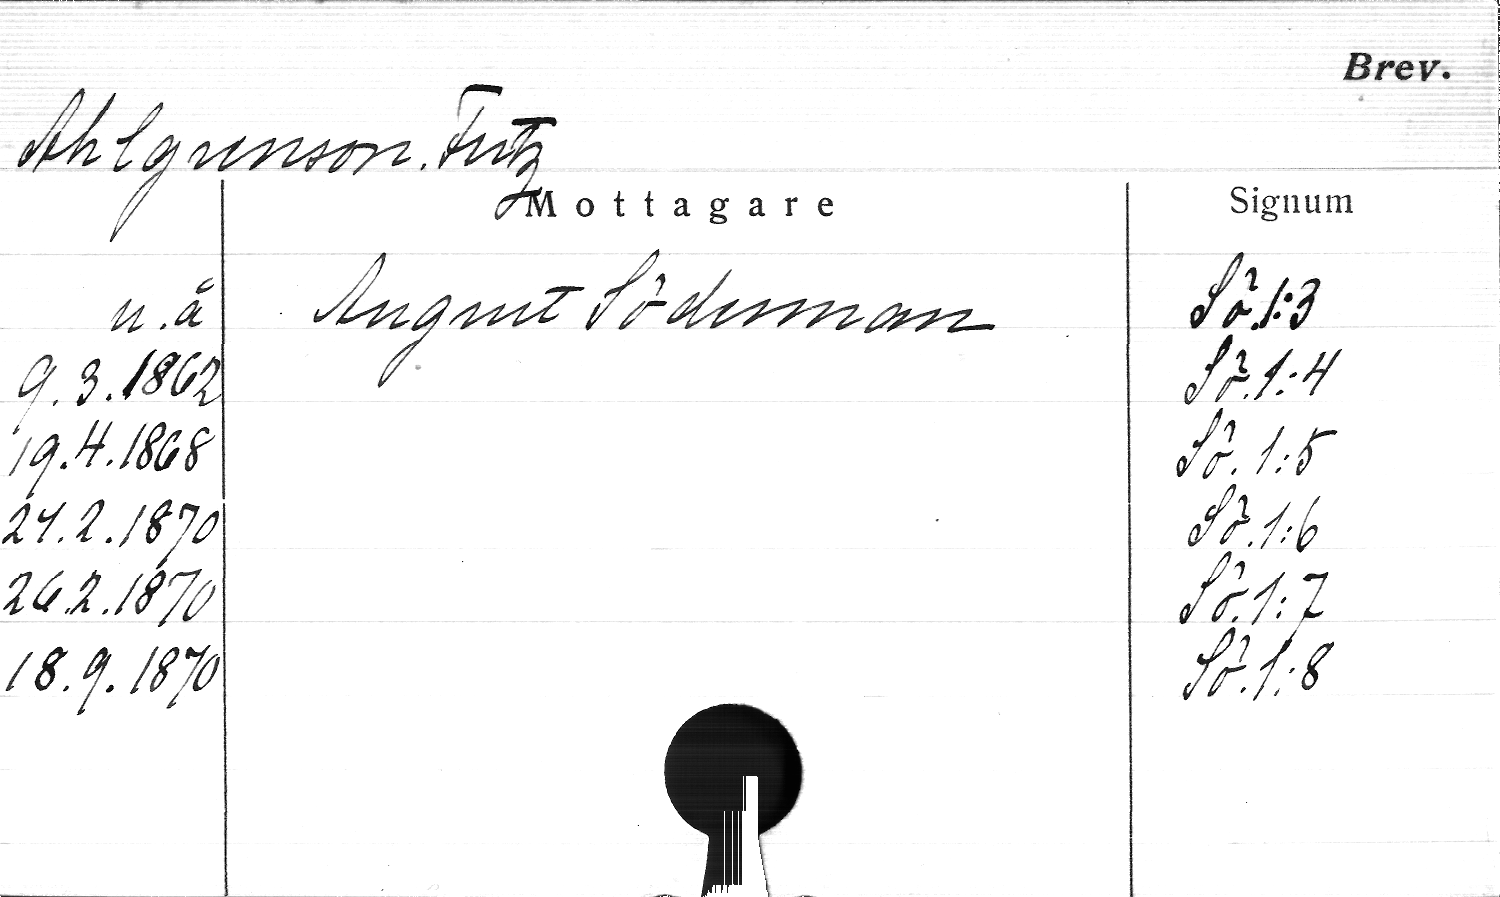 Brev.
Ahlgrenson. Fritz
Mottagare Signum
u.å August Söderman Sö.1:3
9.3.1862 Sö.1:4
19.4.1868 Sö.1:5
24.2.1870 Sö.1:6
26.2.1870 Sö.1:7
18.9.1870 Sö.1:8